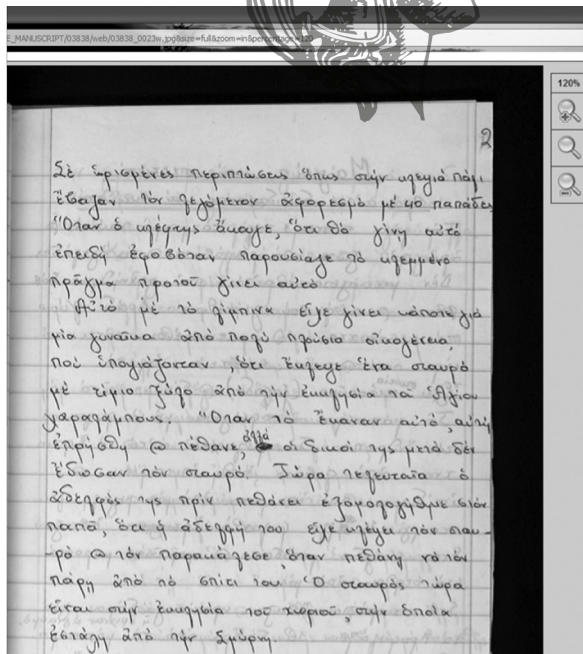 E_MANUSCRIPT/03838/web/03838_0023w.jpg&size=full&zoom=in&percentage=120
120%
2
Σὲ ὡρισμένες περιπτώσεις ὅπως στὴν κλεψιά πάλι
ἔβαζαν τὸν λεγόμενον ἀφορεσμό μὲ 40 παπάδες
Ὅταν ὁ κλέφτης ἄκουγε, ὅτι θὰ γίνη αὐτό
ἐπειδὴ ἐφοβόταν παρουσίαζε τὸ κλεμμένο
πρᾶγμα προτοῦ γίνει αὐτό
Αὐτὸ μὲ τὸ λίμπινα εἶχε γίνει κάποτε γιά
μία γυναῖκα ἀπὸ πολὺ πλούσια οἰκογένεια,
ποὺ ὑπογιάζονταν, ὅτι ἔκλεψε ἕνα σταυρό
μὲ τίμιο ξύλο ἀπὸ τὴν ἐκκλησία τοῦ Ἁγίου
Χαραλάμπους. Ὅταν τὸ ἔκαναν αὐτό, αὐτή
ἐπρήσθη @ πέθανε, ἀλλά οἱ δικοί της μετὰ δὲν
ἔδωσαν τὸν σταυρό. Τώρα τελευταῖα ὁ
ἀδελφός της πρὶν πεθάνει ἐξομολογήθηκε στόν
παπᾶ, ὅτι ἡ ἀδελφή του εἶχε κλέψει τὸν σταυ-
-ρό @ τὸν παρακάλεσε, ὅταν πεθάνη νὰ τόν
πάρη ἀπὸ τὸ σπίτι του Ὁ σταυρός τώρα
εἶναι στὴν ἐκκλησία τοῦ χωριοῦ, στὴν ὁποία
ἐστάλη ἀπὸ τὴν Σμύρνη.